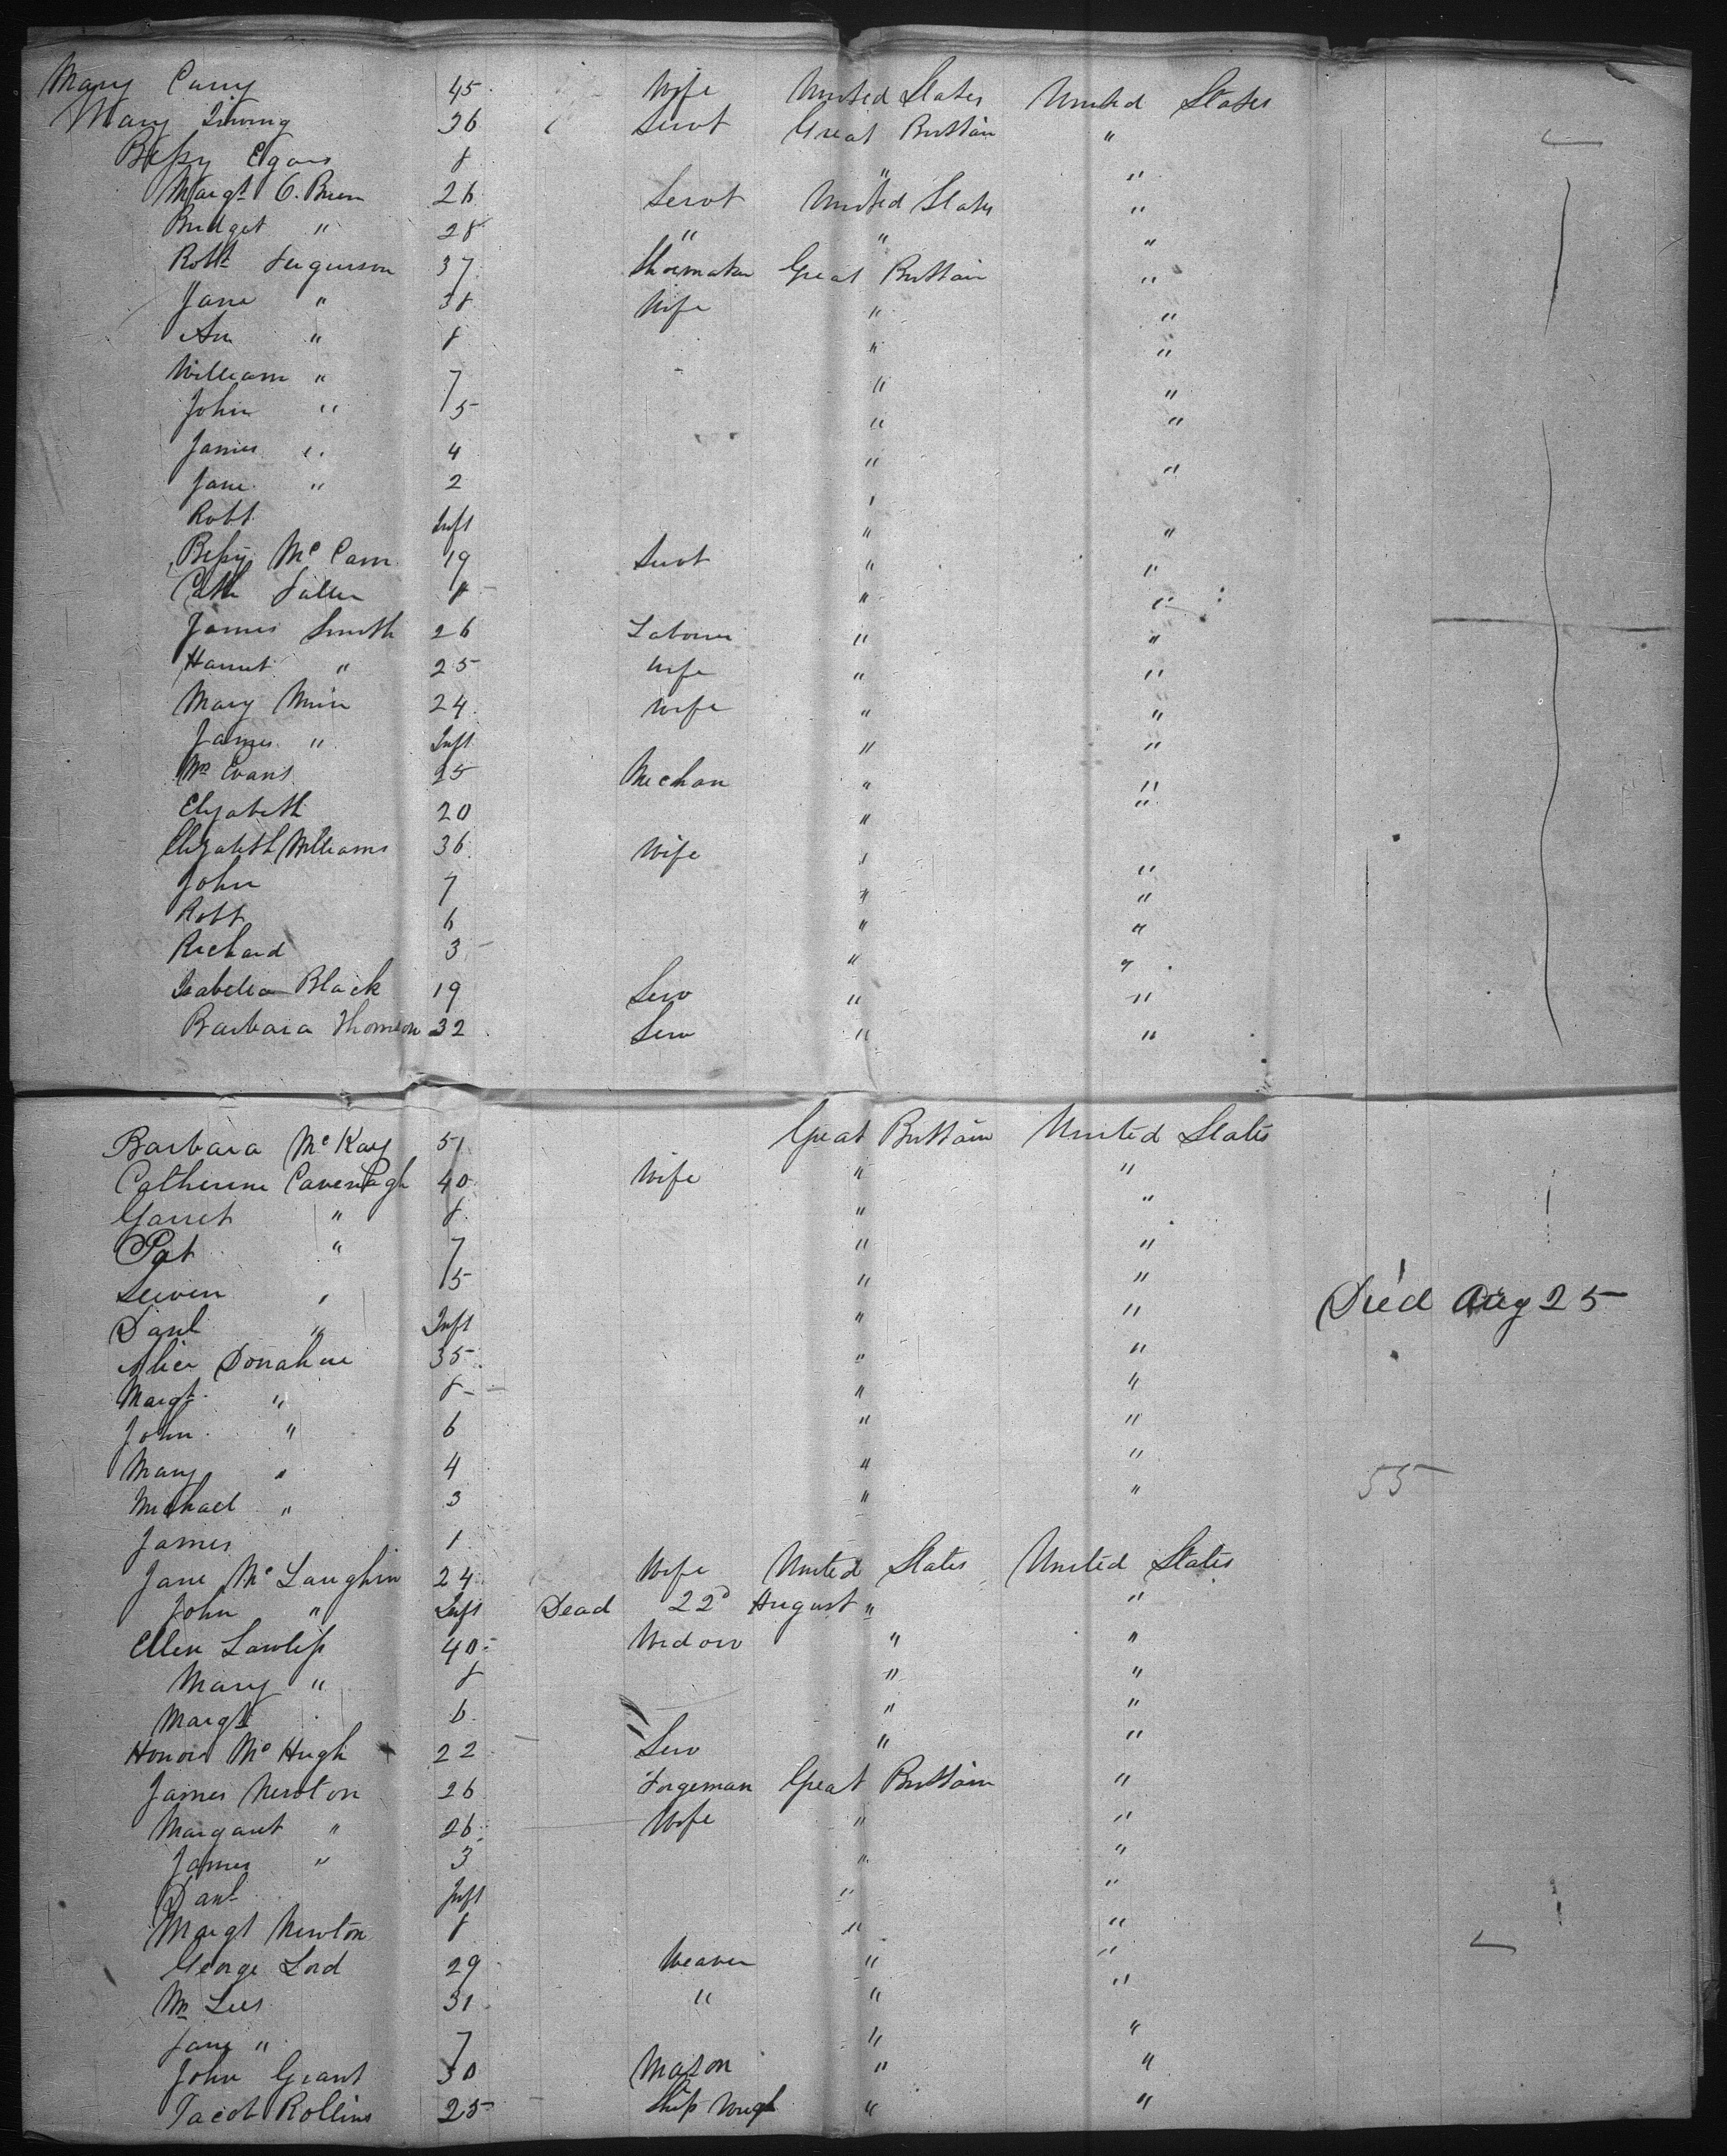 Mary Curry 45 Wife United States United States
Mary 36 Servt Great Brittain "
Bessy Egan 8 " "
Margt O. Brien 26 Servt United States "
Bridget " 28 " " "
Robt Ferguson 37 Shoemaker Great Brittain "
Jane " 38 Wife " "
Ann " 8 " "
William " 7 " "
John " 5 " "
James " 4 " "
Jane " 2 "
Robt Inft " "
Bessy Mc Cann 19 Servt " "
Cath Fallen 8 " "
James Smith 26 Labourer " "
Harriet " 25 Wife " "
Mary Muir 24 Wife " "
James " Inft " "
Wm Evans 25 Mechan " "
Elizabeth 20 " "
Elizabeth Williams 36 Wife " "
John 7 " "
Robt 6 " "
Richard 3 " "
Isabella Black 19 Serv " "
Barbara Thomson 32 Serv " "
Barbara Mc Kay 51 Great Brittain United States
Catherine Cavenagh 40 Wife " "
Garret " 8 " "
Pat " 7 " "
" 5 " "
Danl " Inft " " Died Aug 25
Alice Donahue 35 " "
Margt " 8 " "
John " 6 " "
Mary " 4 " "
Michael " 3 " " 55
James 1
Jane Mc Laughlin 24 Wife United States United States
John " Inft Dead 22d August " "
Ellen Lawless 40 Widow " "
Mary " 8 " "
Margt 6 " "
Honora Mc Hugh 22 Serv " "
James Newton 26 Forgeman Great Brittain "
Margaret " 26 Wife " "
James " 3 " "
Danl Inft " "
Margt Newton 8 " "
George Lord 29 Weaver " "
Wm Lees 31 " " "
Jane " 7 " "
John Grant 30 Mason " "
Jacob Rollins 25 Ship Wrigh " "